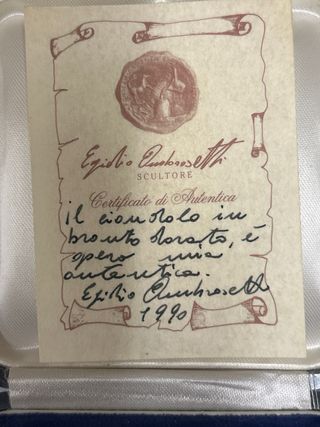 Egidio Ambrosetti
SCULTORE
Certificato di Autentica
il ciondolo in
bronzo dorato, è
opera mia
autentica.
Egidio Ambrosetti
1990